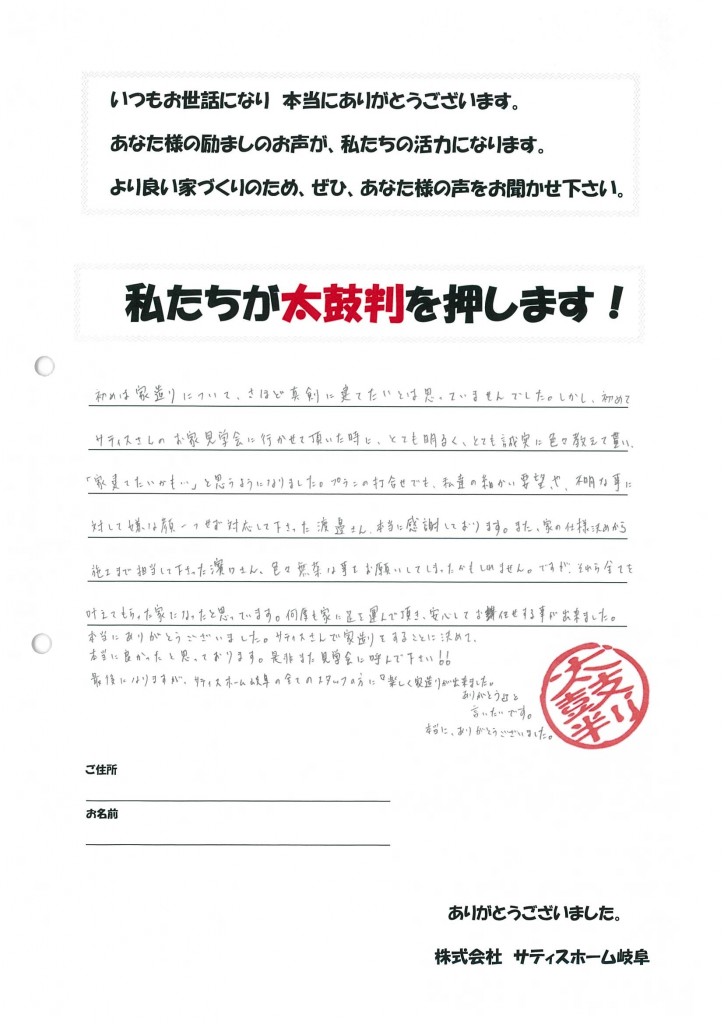 いつもお世話になり 本当にありがとうございます。
あなた様の励ましのお声が、私たちの活力になります。
より良い家づくりのため、ぜひ、あなた様の声をお聞かせ下さい。
私たちが太鼓判を押します！
初めは家造りについて、さほど真剣に建てたいとは思っていませんでした。しかし、初めて
サティスさんのお家見学会に行かせて頂いた時に、とても明るく、とても誠実に色々教えて貰い、
「家建てたいかも、、」と思うようになりました。プランの打合せでも、私達の細かい要望や、不明な事に
対して嫌な顔一つせず対応して下さった渡邉さん、本当に感謝しております。また、家の仕様決めから
施工まで担当して下さった濱口さん、色々無茶な事をお願いしてしまったかもしれません。ですが、それら全てを
叶えてもらった家になったと思っています。何度も家に足を運んで頂き、安心してお任せする事が出来ました。
本当にありがとうございました。サティスさんで家造りをすることに決めて、
本当に良かったと思っております。是非また見学会に呼んで下さい!!
最後になりますが、サティスホーム岐阜の全てのスタッフの方に「楽しく家造りが出来ました。
ありがとう」と
言いたいです。
本当に、ありがとうございました。
太鼓判
ご住所
お名前
ありがとうございました。
株式会社 サティスホーム岐阜